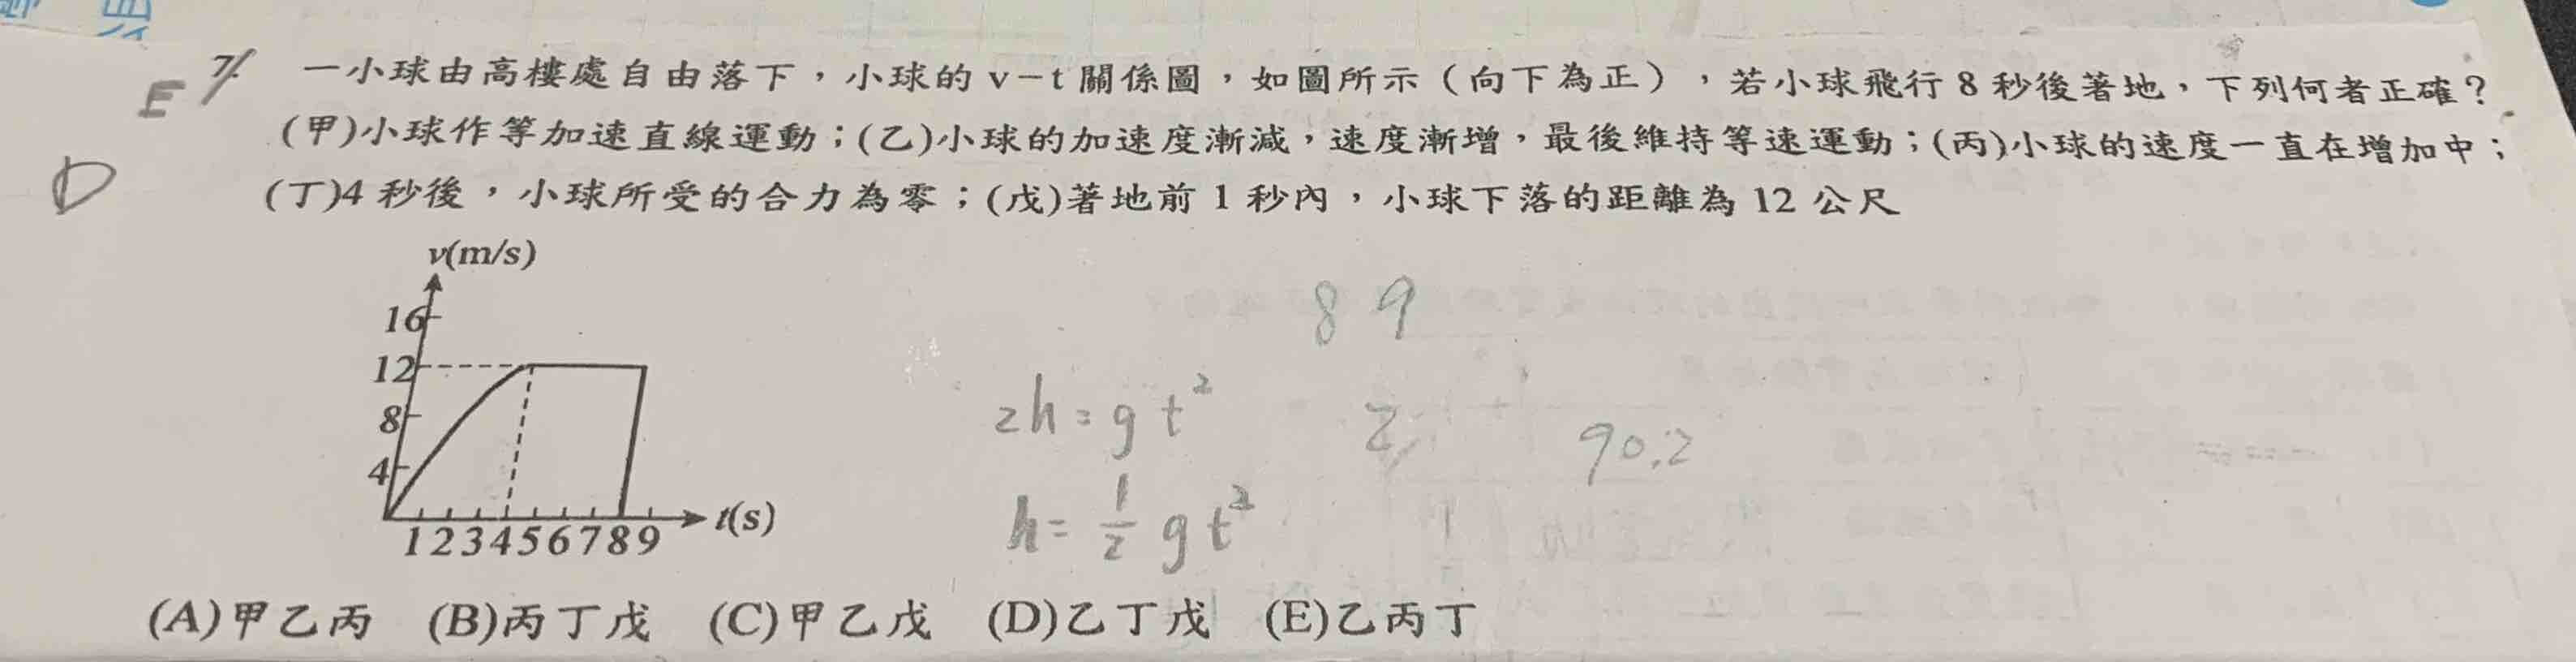 E 7. 一小球由高樓處自由落下，小球的 v－t 關係圖，如圖所示（向下為正），若小球飛行 8 秒後著地，下列何者正確？
(甲)小球作等加速直線運動；(乙)小球的加速度漸減，速度漸增，最後維持等速運動；(丙)小球的速度一直在增加中；
D
(丁)4 秒後，小球所受的合力為零；(戊)著地前 1 秒內，小球下落的距離為 12 公尺
v(m/s)
16
12
8
4
1 2 3 4 5 6 7 8 9
t(s)
8 9
2h = g t²
2
90.2
h = 1/2 g t²
(A)甲乙丙 (B)丙丁戊 (C)甲乙戊 (D)乙丁戊 (E)乙丙丁